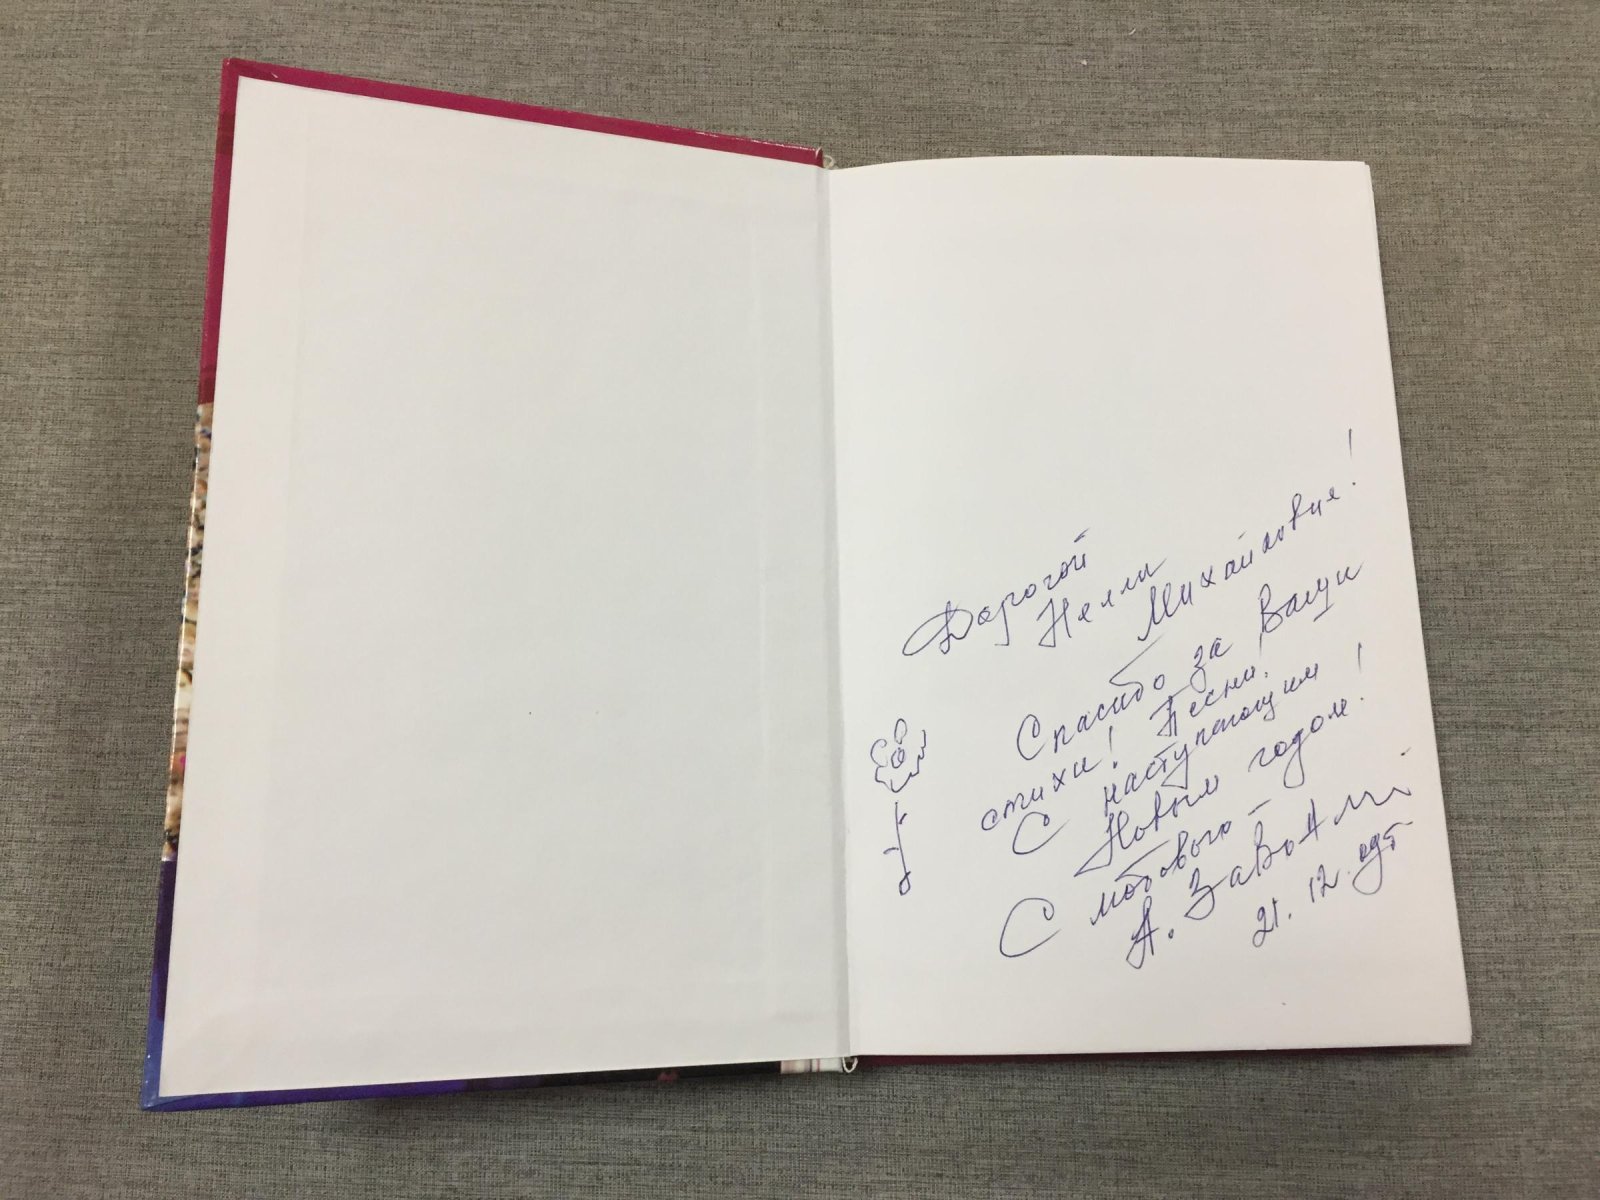 Дорогой
Нелли
Михайловне!
Спасибо за Ваши
стихи! Песни!
С наступающим
Новым годом!
С любовью –
А.
21.12.